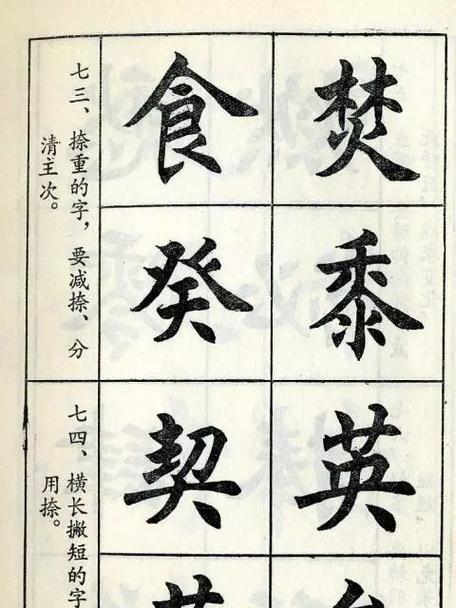 焚
黍
英
食
癸
契
七三、捺重的字，要减捺、分
清主次。
七四、横长撇短的字
用捺。